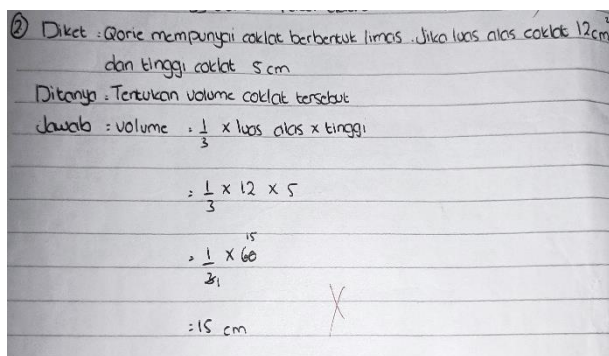 ② Diket : Qorie mempunyai coklat berbentuk limas. Jika luas alas coklat 12 cm²
dan tinggi coklat 5 cm
Ditanya : Tentukan volume coklat tersebut
Jawab : volume = 1/3 x luas alas x tinggi
= 1/3 x 12 x 5
= 1/3 1 x 60 15
= 15 cm